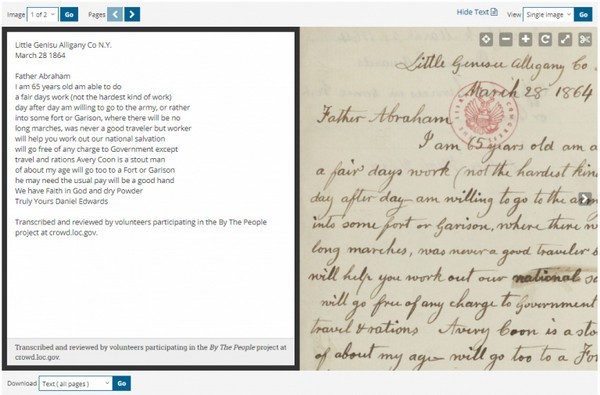 Image 1 of 2 Go Pages Hide Text View Single Image Go
Little Genisu Alligany Co N.Y.
March 28 1864
Father Abraham
I am 65 years old am able to do
a fair days work (not the hardest kind of work)
day after day am willing to go to the army, or rather
into some fort or Garison, where there will be no
long marches, was never a good traveler but worker
will help you work out our national salvation
will go free of any charge to Government except
travel and rations Avery Coon is a stout man
of about my age will go too to a Fort or Garison
he may need the usual pay will be a good hand
We have Faith in God and dry Powder
Truly Yours Daniel Edwards
Transcribed and reviewed by volunteers participating in the By The People
project at crowd.loc.gov.
Transcribed and reviewed by volunteers participating in the By The People project at
crowd.loc.gov.
Little Genesee Allegany Co.
March 28 1864
Father Abraham
I am 65 years old am a
a fair days work (not the hardest kin
day after day am willing to go to the arm
into some fort or Garison, where there w
long marches, was never a good traveler b
will help you work out our national sa
will go free of any charge to Government
travel & rations Avery Coon is a sto
of about my age will go too to a For
Download Text (all pages) Go